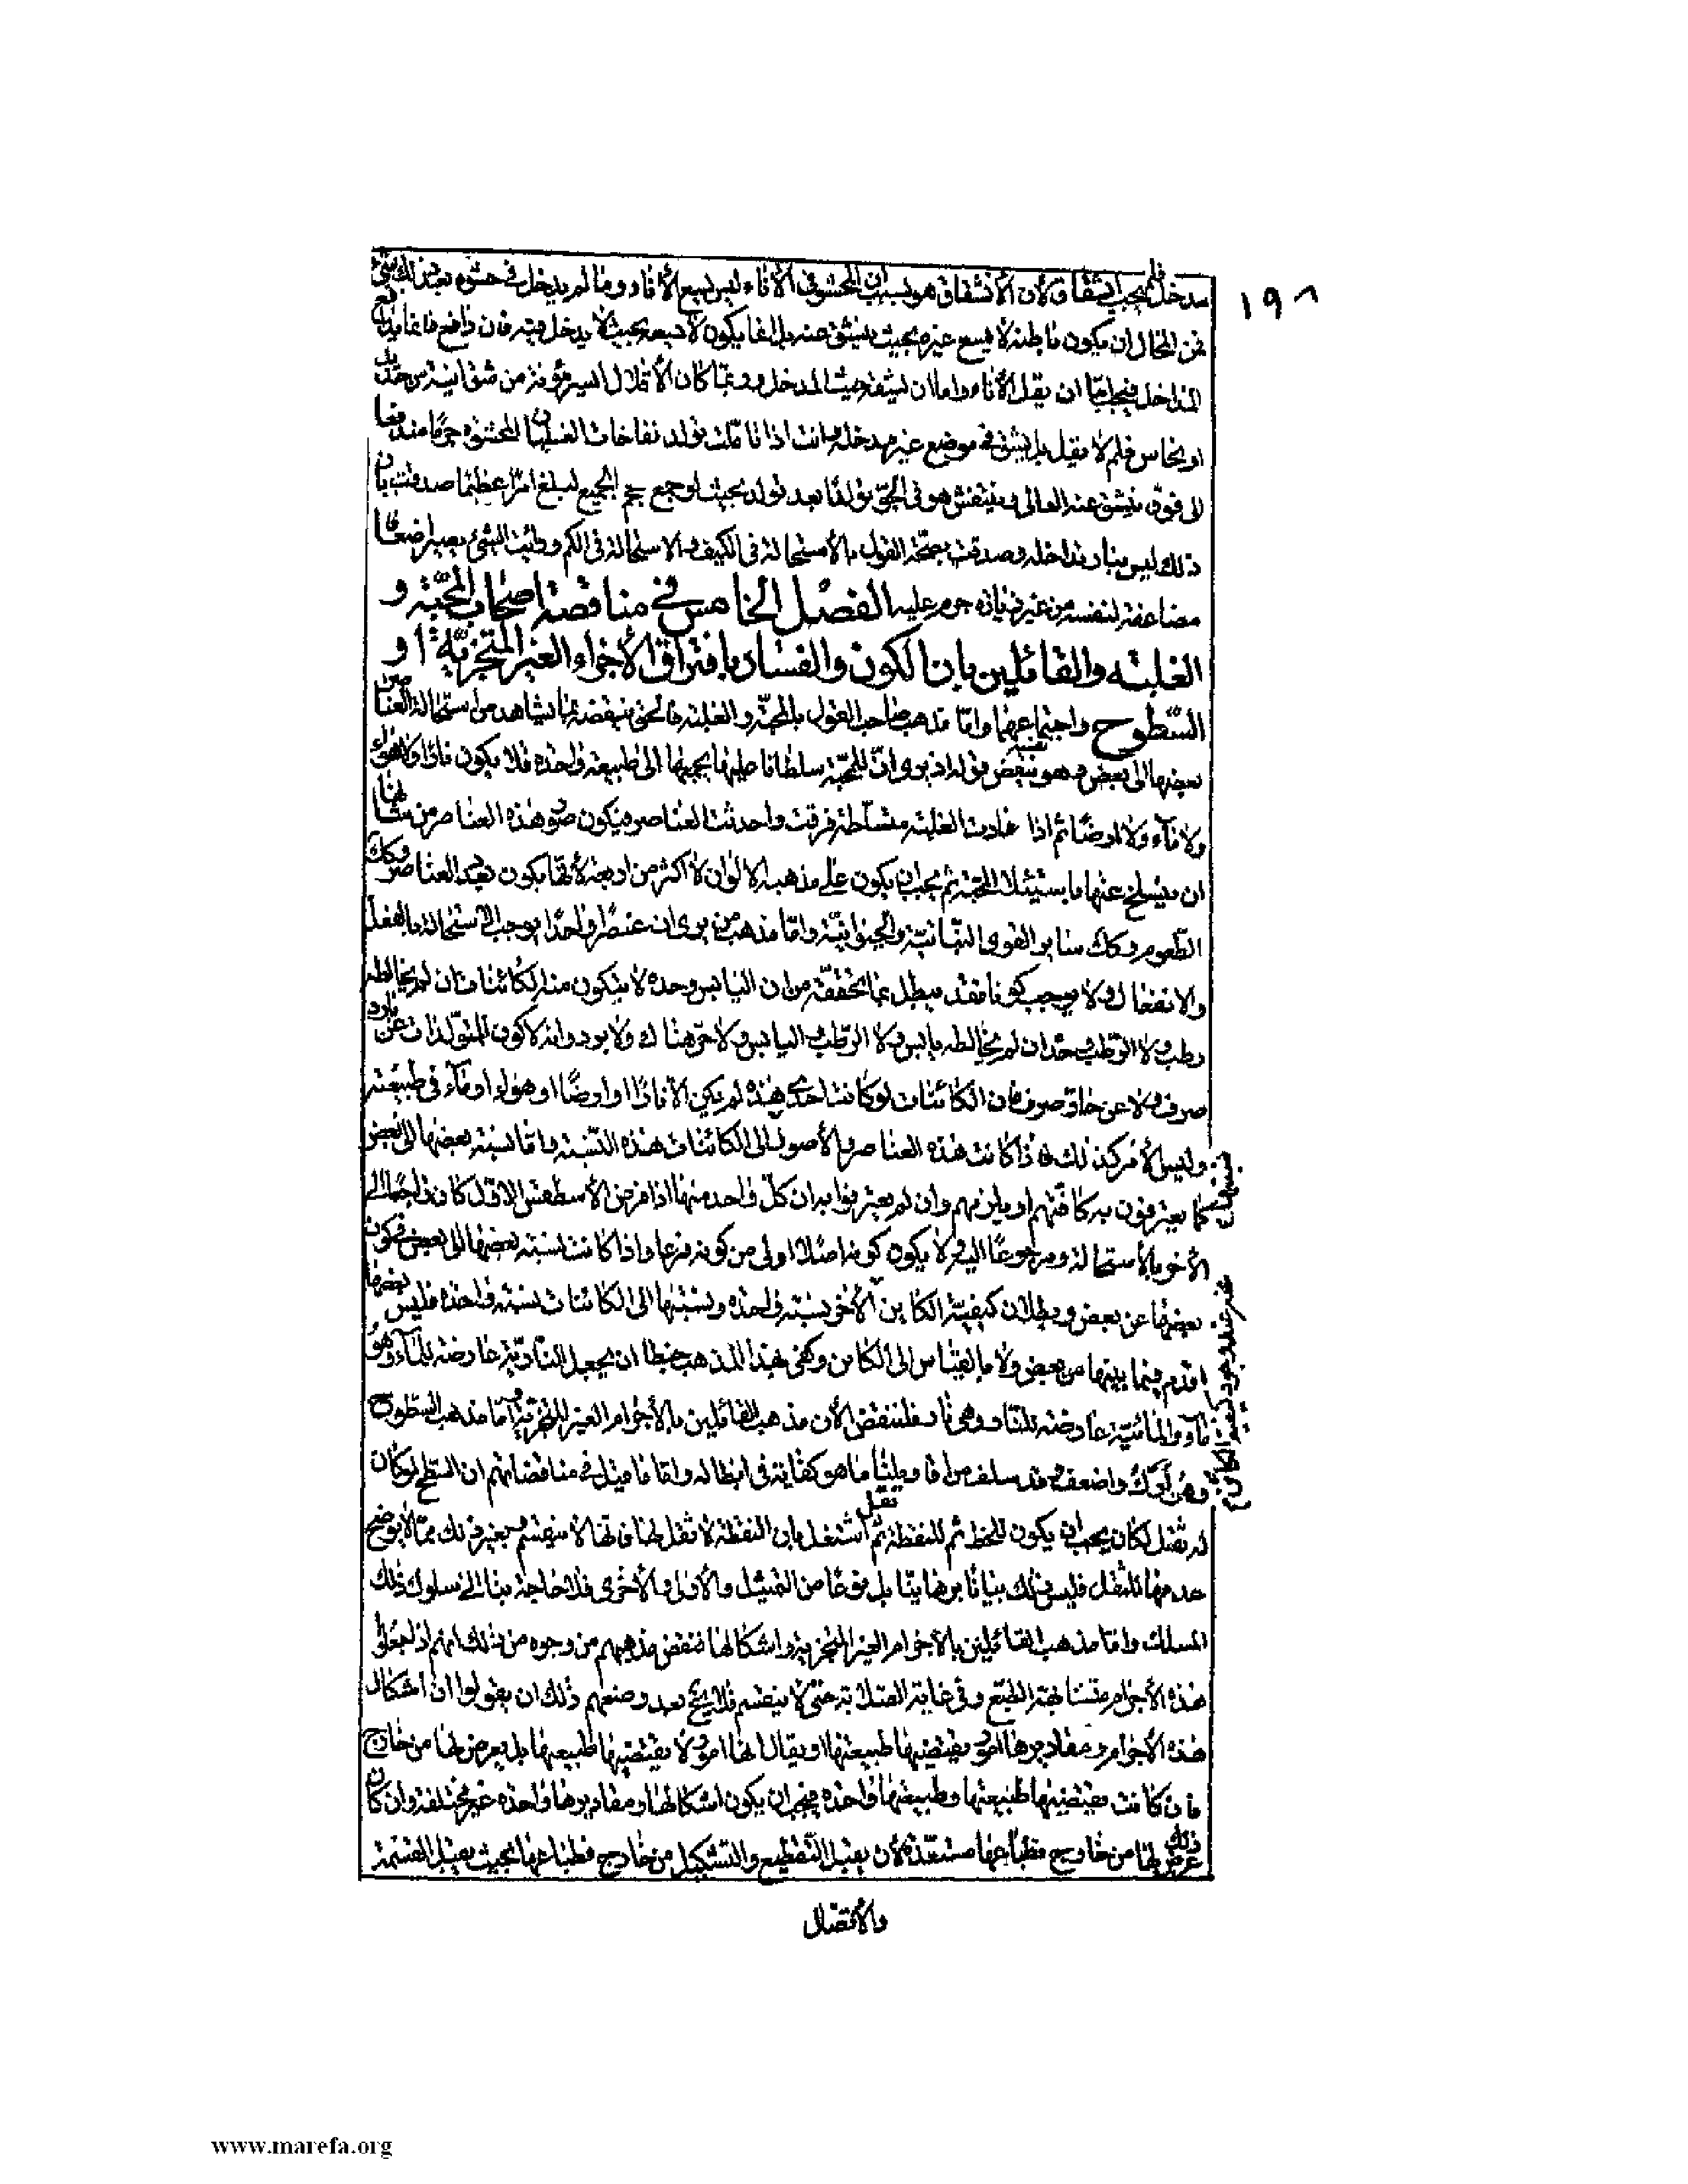 ١٩٨
مدخل فلم يجب انشقاق لأن الأنشقاق هو بسبب ان المحشو فى الأناء ليس يسع الأناء وما لم يدخل فى حشوه بعد ذلك شئ
فمن المحال ان يكون ما بطنه لا يسع غيره بحيث ينشق عنه بل انما يكون لا يسعه بحيث لا يدخل فيه فان دافع فانما يدافع
المداخل فيجب امّا ان يقل الأناء واما ان يشقه حيث المدخل وربما كان الأقلال ايسر مؤنة من شق اينة من حديد
او نحاس فلم لا يقل بل ينشق فى موضع غير مدخله وانت اذا تأملت تولد نفاخات الغليان المحشوه جرما مندفعا
الى فوق ينشق عنه العالى و ينفش هو فى الجو تولدا بعد تولد بحيث لو جمع حجم الجميع لبلغ امرا عظيما صدقت بان
ذلك ليس بنار تداخله وصدقت بصحة القول بالأستحالة فى الكيف والاستحالة فى الكم ورأيت الشئ يصير اضعافا
مضاعفة لنفسه من غير زيادة جرم عليه الفصل الخامس فى مناقضة اصحاب المحبّة و
الغلبة والقائلين بان الكون والفساد بافتراق الأجزاء الغير المتجزّية او
السّطوح واجتماعها وامّا مذهب صاحب القول بالمحبّة والغلبة فالحق ينقضه بما يشاهد من استحالة العناصر
بعضها الى بعض و هو ينقض نفسه قوله اذ يرى انّ للمحبّة سلطانا عليها يجمعها الى طبيعة واحدة فلا يكون نارا ولا هواء
ولا ماء ولا ارضا ثم اذا عادت الغلبة متسلطة فرقت واحدثت العناصر فيكون صور هذه العناصر من شأنها
ان ينسلخ عنها باستيلاء المحبّة ثم يجب ان يكون على مذهبه الالوان لا اكثر من اربعة لأنها يكون بعدد العناصر وكك
الطّعوم وكك سائر القوى النباتيّة والحيوانيّة وامّا مذهب من يرى ان عنصرا واحدا يوجب الاستحالة بالفعل
والانفعال ولا يوجب كونا فقد يبطل بما نحققه من ان اليابس وحده لا يتكون منه الكائنات ان لم يخالطه
رطب ولا الرّطب وحده ان لم يخالطه يابس ولا الرّطب واليابس ولا حرّ هناك ولا برد وانه لا كون المتولدات عن بارد
صرف ولا عن حارّ صرف فان الكائنات لو كانت احدى هذه لم يكن الا نارا او ارضا او هواء او ماء فى طبيعته
وليس الأمر كذلك فاذا كانت هذه العناصر والأصول الى الكائنات هذه النّسبة واما نسبة بعضها الى بعض
كما يعترفون به كافّتهم او يلزمهم وان لم يعترفوا به ان كلّ واحد منها اذا فرض الأسطقس الاوّل كان راجعا الى
الأخر بالأستحالة ومرجوعا اليه فلا يكون كونه اصلا اولى من كونه فرعا واذا كانت نسبة بعضها الى بعض فى كون
بعضها عن بعض وبطلان كيفيّة الكاين الأخر نسبة واحدة ونسبتها الى الكائنات نسبة واحدة فليس بعضها
اقدم فيما بينها من بعض ولا بالقياس الى الكائن وكفى بهذا المذهب خبطا ان يجعل الناريّة عارضة للماء وهو
ماء والمائيّة عارضة للنار وهى نار فلننقض الأن مذهب القائلين بالأجرام الغير المتجزّية امّا مذهب السّطوح
وهو اركّ واضعف فقد سلف من اقاويلنا ما هو كفاية فى ابطاله واما ما قيل فى مناقضاتهم ان السّطح لو كان
له ثقل لكان يجب ان يكون للخط ثم للنقطة ثقل ثم اشتغل بان النقطة لا ثقل لها فانها لا ينقسم وبغير ذلك ممّا لا يوضح
عدمها للثقل فليس ذلك بيانا برهانيّا بل نوعا من التمثيل والأولى والأحرى فلا حاجة بنا الى سلوك ذلك
المسلك وامّا مذهب القائلين بالأجرام الغير المتجزية واشكالها فننقض مذهبهم من وجوه من ذلك انهم اذ جعلوا
هذه الأجرام متشابهة الطّبع وفى غاية الصّلابة حتى لا ينقسم فلا يخ بعد وضعهم ذلك ان يقولوا ان اشكال
هذه الأجرام ومقاديرها امور يقتضيها طبيعتها او يقال انها امور لا يقتضيها طبيعتها بل يعرض لها من خارج
فان كانت يقتضيها طبيعتها وطبيعتها واحدة فيجب ان يكون اشكالها ومقاديرها واحدة غير مختلفة وان كان
ذلك عرض لها من خارج فطباعها مستعدّة لأن يقبل التّقطيع والتشكيل من خارج فطباعها بحيث يقبل القسمة
والأتصال
www.marefa.org